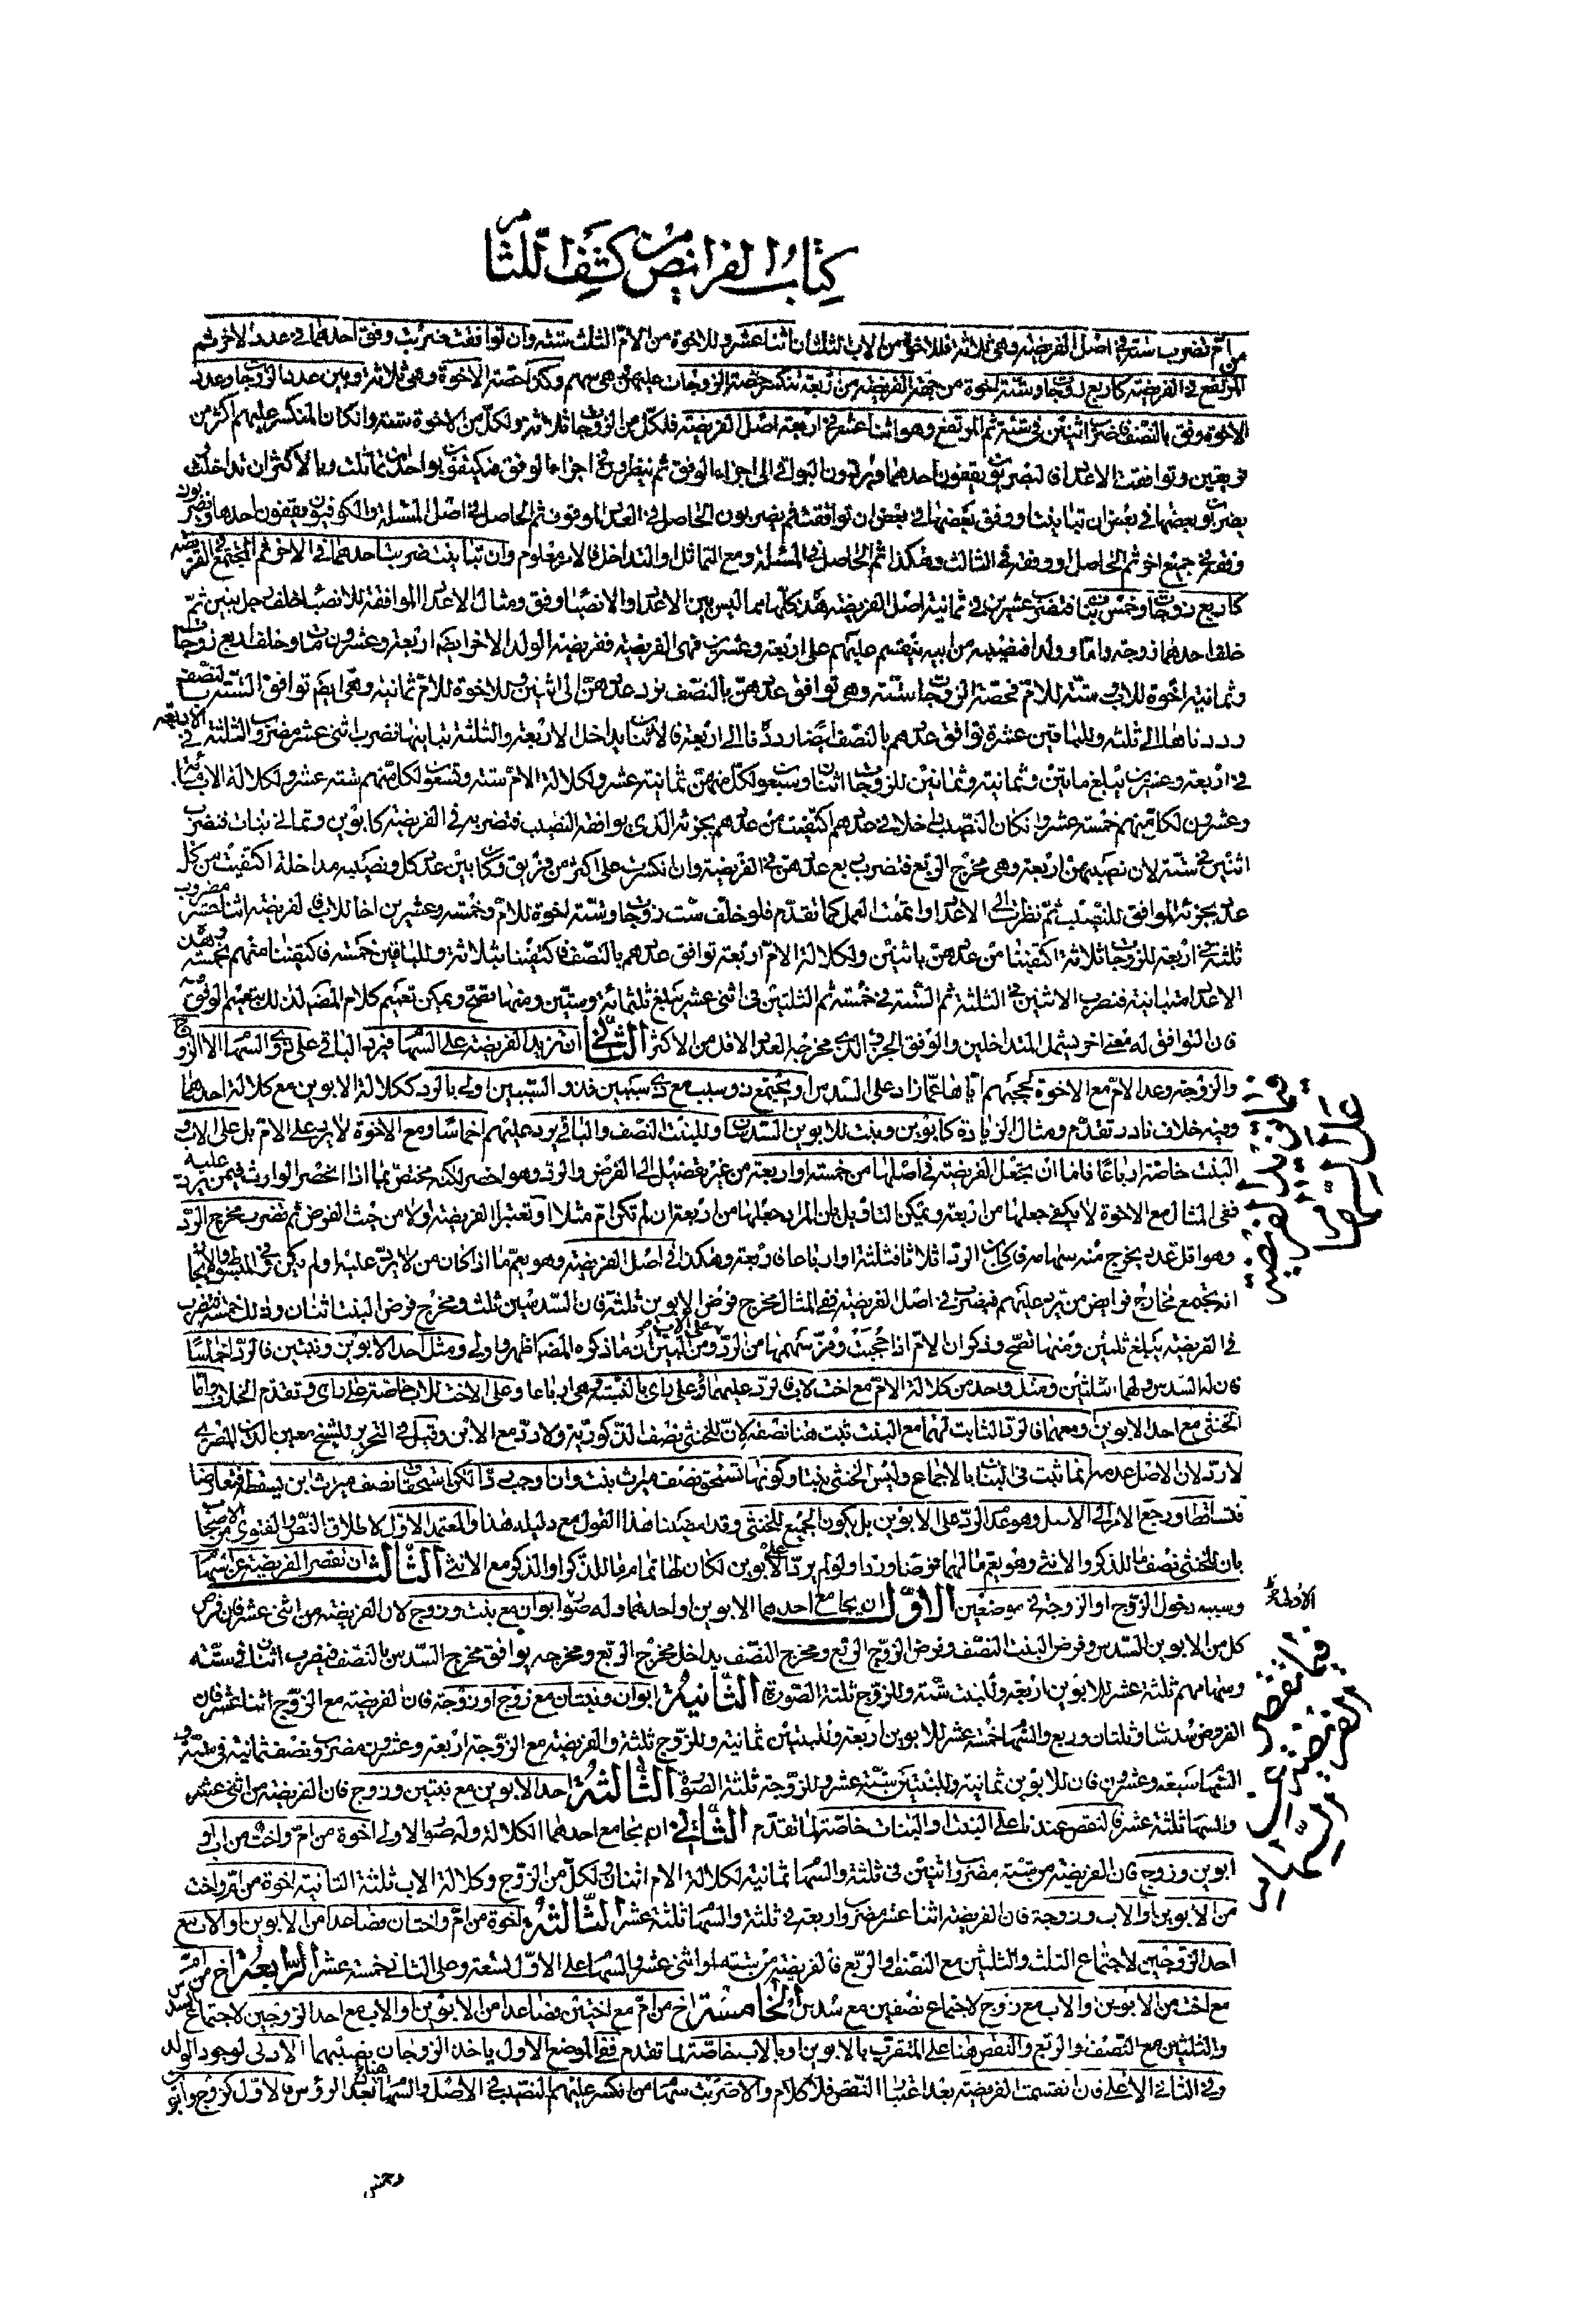 كتاب الفرائض من كشف اللثام
من ام تضرب ستة في اصل الفريضة وهي ثلاثة فللاخوة من الاب الثلثان اثنا عشر وللاخوة من الام الثلث ستة وان توافقت ضربت وفق احدهما في عدد الاخر ثم
المرتفع في الفريضة كاربع زوجات وستة اخوة من الفريضة من اربعة تنكسر حصة الزوجات عليهن وهي سهم وكذا حصة الاخوة وهي ثلاثة وبين عدد الزوجات وعدد
الاخوة وفق بالنصف اثنين في ستة ثم المرتفع وهو اثنا عشر في اربعة اصل الفريضة فلكل من الزوجات ثلاثة ولكل من الاخوة ستة وان كان المنكسر عليهم اكثر من
فريقين وتوافقت الاعداد فالبصريون يقفون احدهما ويردون البواقي الى اجزاء الوفق ثم ينظرون في اجزاء الوفق فيكتفون بواحد ان تماثلت وبالاكثر ان تداخلت
يضربون بعضها في بعض ان تباينت ووفق بعضها في بعض ان توافقت ثم يضربون الحاصل في العدد الموقوف ثم الحاصل في اصل المسئلة والكوفيون يقفون احدها ويضربون
وفقه في جميع اخر ثم الحاصل او وفقه في الثالث وهكذا ثم الحاصل في المسئلة ومع التماثل والتداخل فالامر معلوم وان تباينت ضربت احدهما في الاخر ثم المجتمع في الفريضة
كاربع زوجات وخمس بنات فتضرب عشرين في ثمانية اصل الفريضة هذه كلها مما ليس بين الاعداد والانصباء وفق ومثال الاعداد الموافقة للانصباء خلف رجل ابنين ثم
خلف احدهما زوجة واما وولدا فنصيبه من ابيه ينقسم عليهم على اربعة وعشرين فهي الفريضة ففريضة الولد الاخر ايضا اربعة وعشرون وخلف اربع زوجات
وثمانية اخوة للاب ستة للام فحصة الزوجات ستة وهي توافق عددهن بالنصف نرد عددهن الى اثنين وللاخوة للام ثمانية وهي ايضا توافق الستة بالنصف
رددناها الى ثلثة وللباقين عشرة توافق عددهم بالنصف ايضا رددنا الى اربعة فالاثنان يداخل الاربعة والثلثة تباينها تضرب اثني عشر مضروب الثلثة في الاربعة
في اربعة وعشرين يبلغ مائتين وثمانية وثمانين للزوجات اثنان وسبعون لكل منهن ثمانية عشر ولكلالة الام ستة وتسعون لكل منهم ستة عشر ولكلالة الاب مائة
وعشرون لكل منهم خمسة عشر وان كان النصيب داخلا في عددهم اكتفيت من عددهم بجزئه الذي يوافقه النصيب فتضربه في الفريضة كابوين وثماني بنات فتضرب
اثنين في ستة لان نصيبهن اربعة وهي مخرج الربع فتضرب ربع عددهن في الفريضة وان انكسرت على اكثر من فريق وكان بين عدد كل ونصيبه مداخلة اكتفيت من كل
عدد بجزئه الموافق للنصيب ثم نظرت الى الاعداد واتممت العمل كما تقدم فلو خلف ست زوجات وستة اخوة للام وخمسة وعشرين اخا للاب فالفريضة اثنا عشر مضروب
ثلثة في اربعة للزوجات ثلاثة اكتفينا من عددهن باثنين ولكلالة الام اربعة توافق عددهم بالنصف فاكتفينا بثلاثة وللباقين خمسة فاكتفينا منهم بخمسة وهذه
الاعداد متباينة فنضرب الاثنين في الثلثة ثم الستة في خمسة ثم الثلثين في اثني عشر يبلغ ثلثمائة وستين ومنها تصح ويمكن تعميم كلام المصنف لذلك بتعميم الوفق
فان التوافق له معنى اخر يشمل المتداخلين والوفق الجزء الذي مخرجه العدد الاقل من الاكثر الثاني ان تزيد الفريضة على السهام فيرد الباقي على ذوي السهام الا الزوج
والزوجة وعدا الام مع الاخوة لحجبهم اياها عما زاد على السدس او يجتمع ذو سبب مع ذي سببين فذو السببين اولى بالرد ككلالة الابوين مع كلالة احدهما
وفيه خلاف نادر تقدم ومثال الزيادة كابوين وبنت للابوين السدسان وللبنت النصف والباقي يرد عليهم اخماسا ومع الاخوة لا يرد على الام بل على الاب و
البنت خاصة ارباعا فاما ان يجعل الفريضة في اصلها من خمسة او اربعة من غير تفصيل الى الفرض والرد وهو اخصر لكنه مختص بما اذا انحصر الوارث فيمن يرد عليه
ففي المثال مع الاخوة لا يكفي جعلها من اربعة ويمكن التاويل بان المراد جعلها من اربعة ان لم تكن ام مثلا او تعتبر الفريضة اولا من حيث الفرض ثم تضرب مخرج الرد
وهو اقل عدد يخرج منه سهامه فان كان الرد اثلاثا فثلثة او ارباعا فاربعة وهكذا في اصل الفريضة وهو يعم ما اذا كان من لا يرد عليه او لم يكن وفي المبسوط والايجاز
انه يجمع مخارج فرايض من يرد عليهم فيضرب في اصل الفريضة ففي المثال مخرج فرض الابوين ثلثة فان السدسين ثلث ومخرج فرض البنت اثنان وذلك خمسة مضرب
في الفريضة يبلغ ثلثين ومنها تصح وذكر ان الام اذا حجبت وفر سهمها من الرد على الاب ومن البين ان ما ذكره المصنف اظهر واولى ومثل احد الابوين وبنتين فالرد اخماسا
فان له السدس ولهما الثلثين ومثل واحد من كلالة الام مع اخت لاب فالرد عليهما على راي بالنسبة وهي ارباعا وعلى الاخت للاب خاصة على راي وتقدم الخلاف واما
الخنثى مع احد الابوين او معهما فالرد الثابت لهما مع البنت ثبت هنا نصفه لان للخنثى نصف الذكورية ولا رد مع الابن وقيل في التحرير للشيخ معين الدين المصري
لا رد لان الاصل عدمه انما ثبت في البنات بالاجماع وليس الخنثى بنتا وكونها تستحق نصف ميراث بنت وان اوجب ردا لكن استحقاقها نصف ميراث ابن يسقطه فتعارضا
فتساقطا ورجع الامر الى الاصل وهو عدم الرد على الابوين بل يكون الجميع للخنثى وقد ايدنا هذا القول مع دليله هذا والمعتمد الاول لاطلاق النص والفتوى من الاصحاب
بان للخنثى نصف ما للذكر والانثى وهو يعم ما لهما فرضا وردا ولو لم يرد على الابوين لكان لها تمام ما للذكر او الذكر مع الانثى الثالث ان تقصر الفريضة عن السهام
وسببه دخول الزوج او الزوجة في موضعين الاول ان يجامع احدهما الابوين او احدهما وله صور الاولى ابوان مع بنت وزوج لان الفريضة من اثني عشر فان فرض
كل من الابوين السدس وفرض البنت النصف وفرض الزوج الربع ومخرج النصف يداخل مخرج الربع ومخرجه يوافق مخرج السدس بالنصف فيضرب اثنان في ستة
وسهامهم ثلثة عشر للابوين اربعة وللبنت ستة وللزوج ثلثة الصورة الثانية ابوان وبنتان مع زوج او زوجة فان الفريضة مع الزوج اثنا عشر فان
الفروض سدسان وثلثان وربع والسهام خمسة عشر للابوين اربعة وللبنتين ثمانية وللزوج ثلثة والفريضة مع الزوجة اربعة وعشرون مضروب نصف ثمانية في ستة و
السهام سبعة وعشرون فان للابوين ثمانية وللبنتين ستة عشر وللزوجة ثلثة الصورة الثالثة احد الابوين مع بنتين وزوج فان الفريضة من اثني عشر
والسهام ثلثة عشر فالنقص عندنا على البنت او البنات خاصة لما تقدم الثاني ان يجامع احدهما الكلالة وله صور الاولى اخوة من ام واخت من اب او
ابوين وزوج فان الفريضة من ستة مضروب اثنين في ثلثة والسهام ثمانية لكلالة الام اثنان ولكل من الزوج وكلالة الاب ثلثة الثانية اخوة من ام واخت
من الابوين او الاب وزوجة فان الفريضة اثنا عشر مضروب اربعة في ثلثة والسهام ثلثة عشر الثالثة اخوة من ام واختان فصاعدا من الابوين او الاب مع
احد الزوجين لاجتماع الثلث والثلثين مع النصف او الربع فالفريضة من ستة او اثني عشر والسهام على الاول تسعة وعلى الثاني خمسة عشر الرابعة اخ من ام
مع اخت من الابوين او الاب مع زوج لاجتماع نصفين مع سدس الخامسة اخ من ام مع اختين فصاعدا من الابوين او الاب مع احد الزوجين لاجتماع السدس
والثلثين مع النصف او الربع والنقص هنا على المتقرب بالابوين او بالاب خاصة لما تقدم ففي الموضع الاول ياخذ الزوجان نصيبهما الادنى لوجود الولد
وفي الثاني الاعلى فان انقسمت الفريضة بعد اعتبار النقص فلا كلام والا ضربت سهام من انكسر عليهم النصيب في الاصل والسهام هنا بعدد الرؤس فالاول كزوج وابوين
وخمس
فيما زيد الفريضة
على السهام
فيما نقص
الفريضة
عن السهام